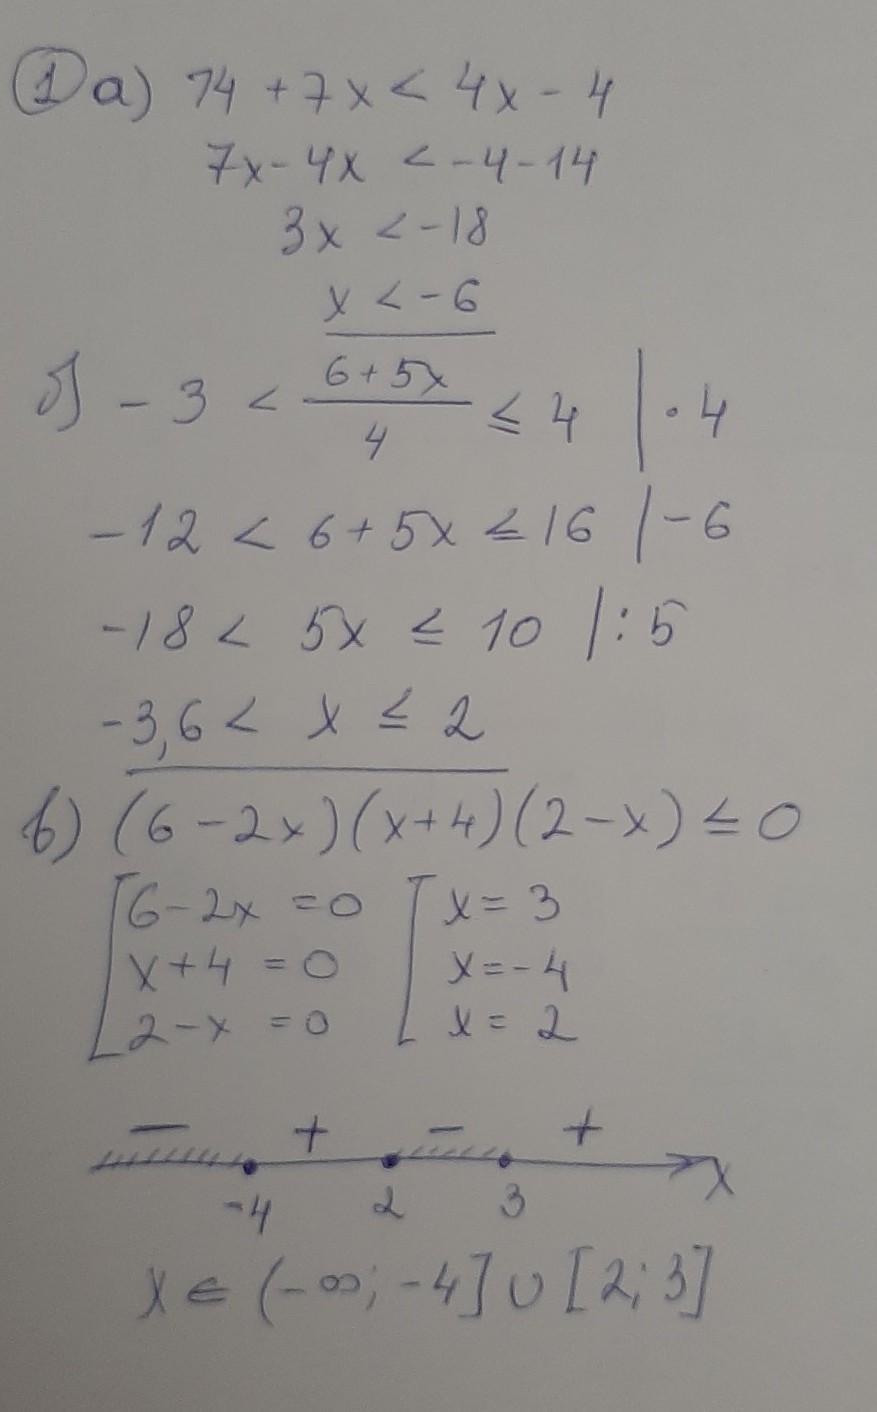 ① а) 14 + 7x < 4x - 4
7x - 4x < -4 - 14
3x < -18
x < -6
б) -3 < (6 + 5x)/4 ≤ 4 | · 4
-12 < 6 + 5x ≤ 16 | -6
-18 < 5x ≤ 10 | : 5
-3,6 < x ≤ 2
в) (6 - 2x)(x + 4)(2 - x) ≤ 0
[ 6 - 2x = 0 [ x = 3
x + 4 = 0 x = -4
2 - x = 0 x = 2
- + - +
-4 2 3 x
x ∈ (-∞; -4] ∪ [2; 3]